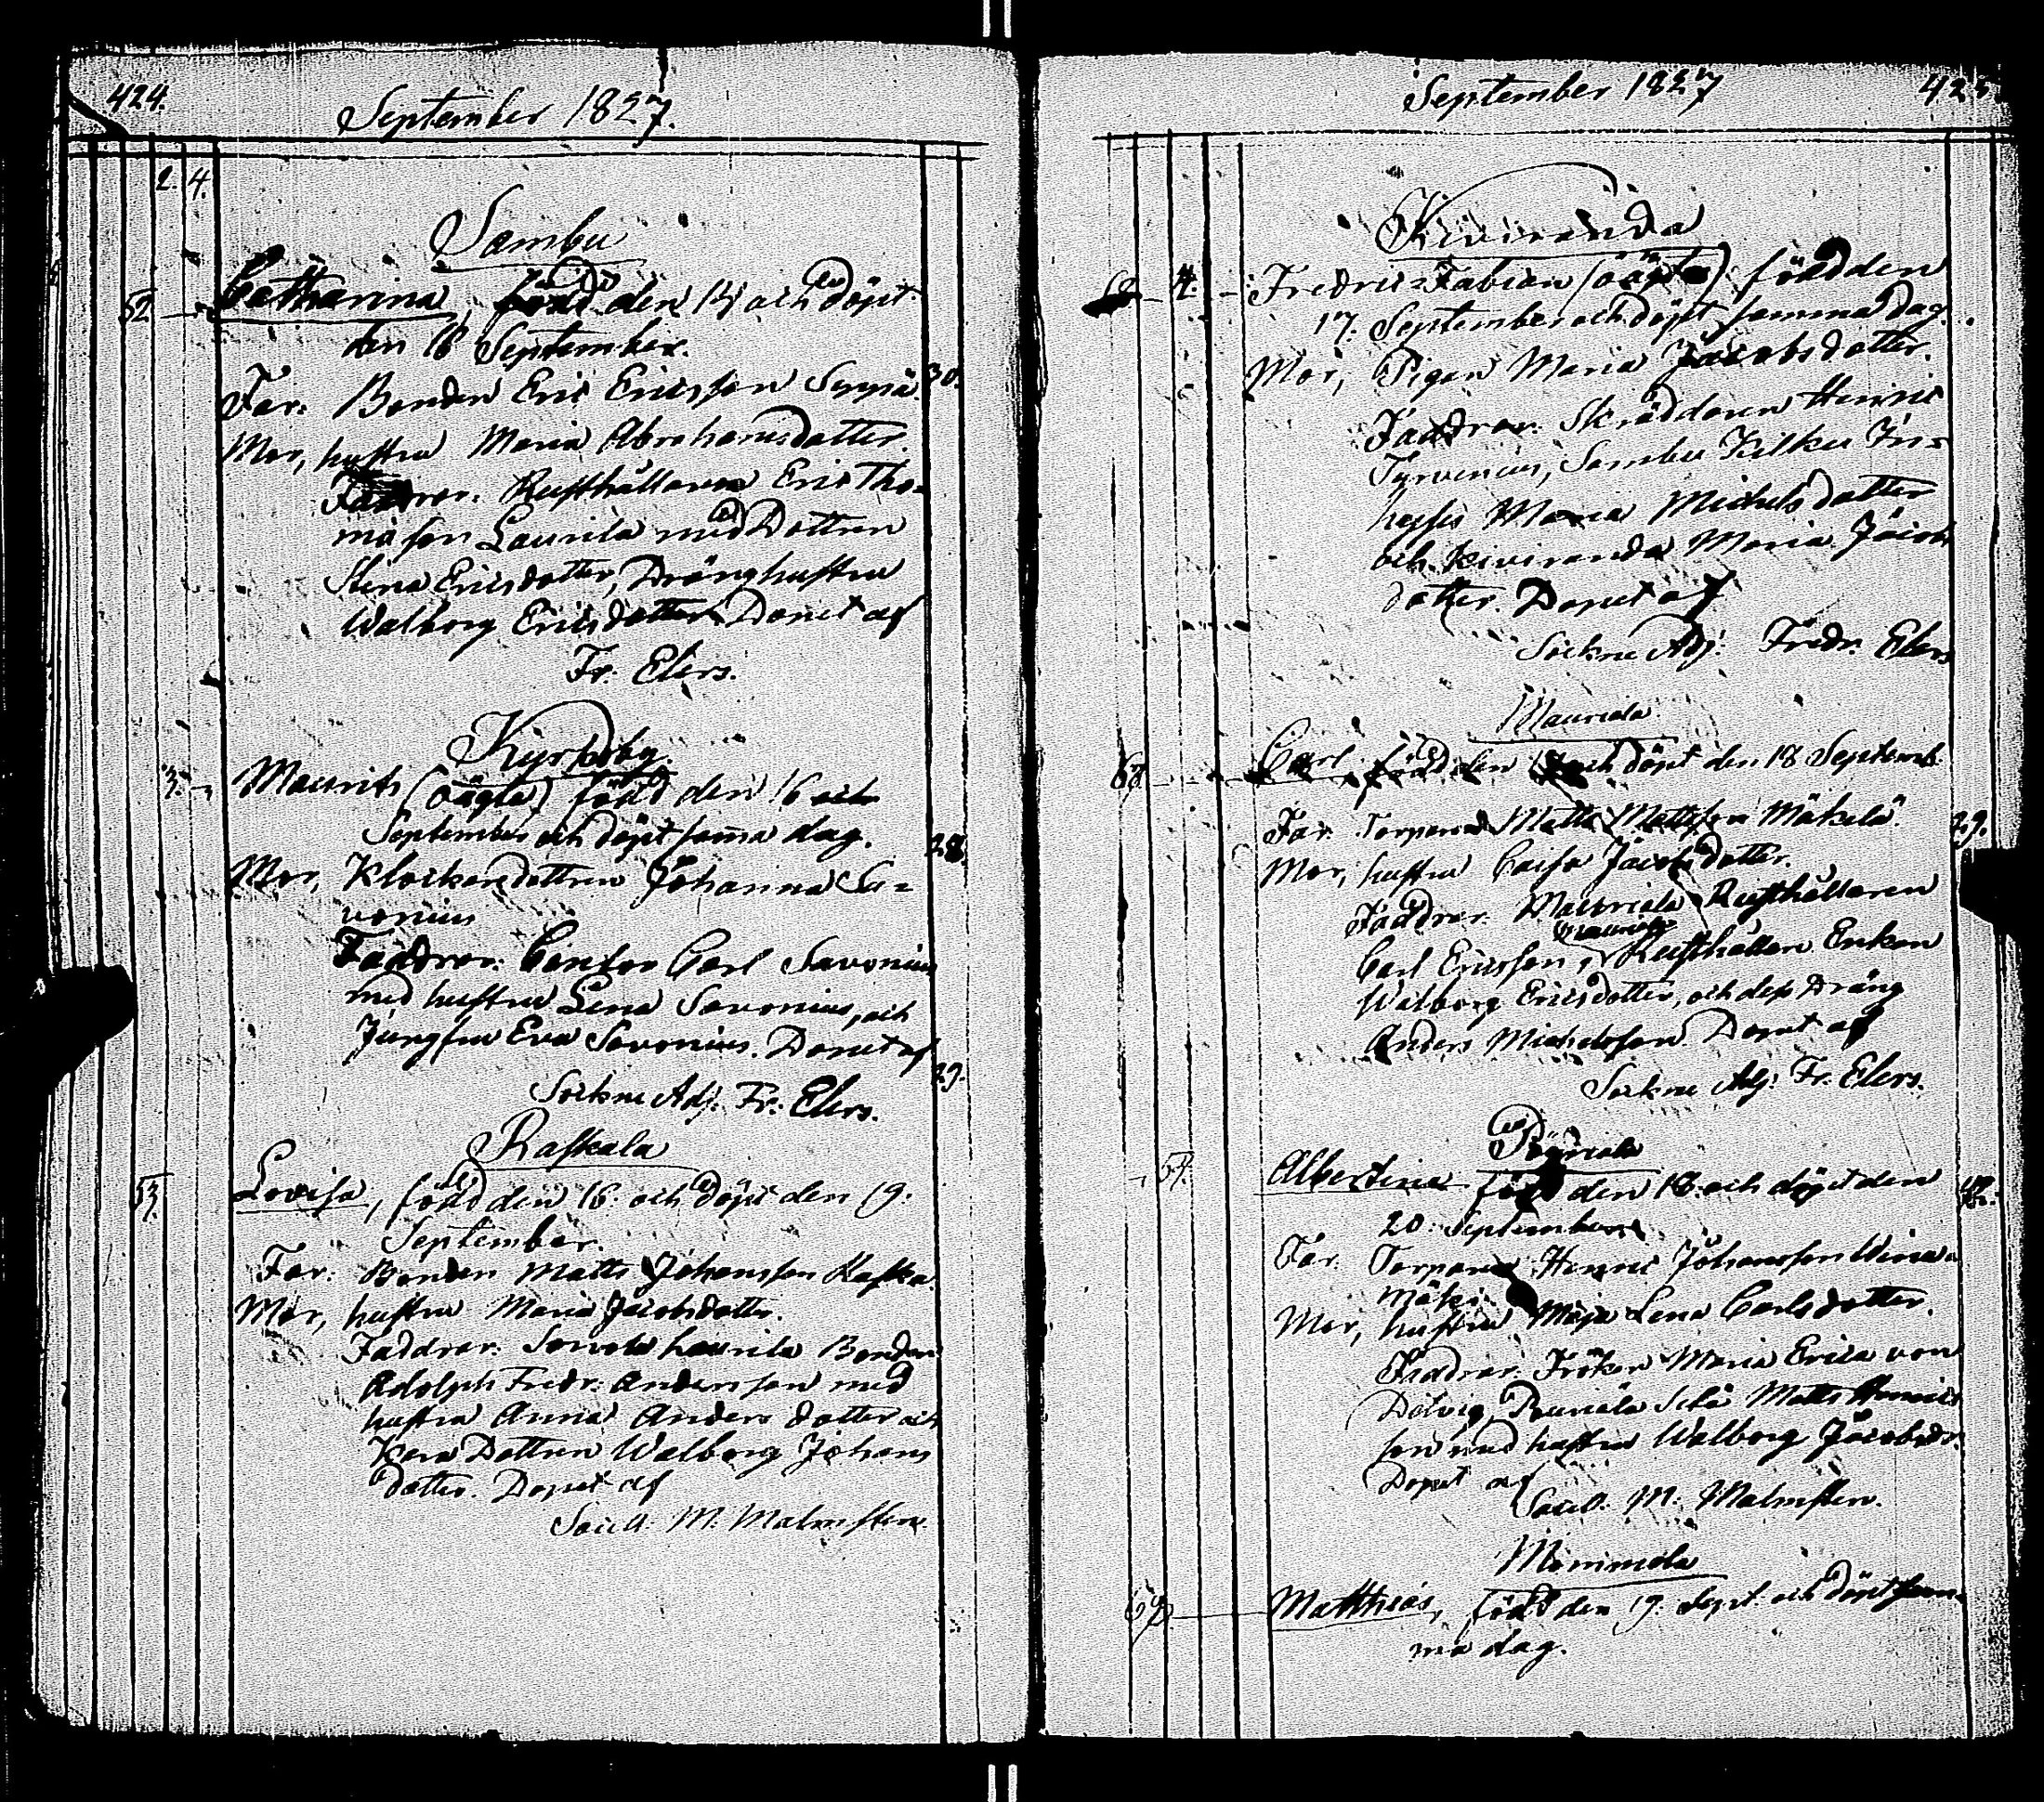 424.
September 1827.
2. 4.
Sambu
52 Catharina, född den och döpt
den 18 September.
Far. Bonden Eric Ericsson 30.
Mor, hustru Maria Abrahamsdotter.
Faddrar. Rusthållaren Eric Tho-
masson Laurila med Dottren
Stina Ericsdotter, Dränghustru
Walborg Ericsdotter. Döpet af
Fr. Elers.
Kyrkoby
3. Maurits (oägta) född den 16 och
September och döpt sama dag. 28.
Mor, Klockarsdottren Johanna Sa-
vonius
Faddrar. Cantor Carl Savonius
med hustru Lena Savonius, och
Jungfru Eva Savonius. Döpet af
29.
Sockne Adj. Fr. Elers.
Raskala
53. Lovisa, född den 16. och döpt den 19.
September.
Far. Bonden Matts Johansson Raska.
Mor, hustru Maria Jacobsdotter.
Faddrar. Laurila Bonden
Adolph Fredr. Andersson med
hustru Anna Andersdotter och
Dottren Walborg Johans
dotter. Döpet af
Sacell. M. Malmsten.
September 1827
Kiviranda
4. Fredric Fabian (oägta) född den
17. September och döpt samma dag.
Mor, Pigan Maria Jacobsdotter.
Faddrar. Skräddaren Henric
Tyrvenius, Sambu Kilku In-
hyses Maria Michelsdotter
och Kiviranda Maria Jacobs
dotter. Döpet af
Sockne Adj. Fredr. Elers
Mauriala
Carl, född den och döpt den 18 Septemb.
Far. Torparen Matts Mattsson Mäkelä. 29.
Mor, hustru Caisa Jacobsdotter.
Faddrar. Mauriala Rusthållaren
Carl Ericsson, Rusthållare Enkan
Walborg Ericsdotter, och dess Dräng
Anders Michelsson. Döpet af
Sockne Adj. Fr. Elers.
54. Albertina född den 18. och döpt den
20. September.
Far. Torparen Henric Johansson
mäki.
Mor, hustru Maja Lena Carlsdotter.
Faddrar. Fröken Maria Erica von
Matts Henrics
son med hustru Walborg Jacobsdr.
Döpet af
Sacell. M. Malmsten.
Mommola
Matthias, född den 19. Sept. och döpt sam-
ma dag.